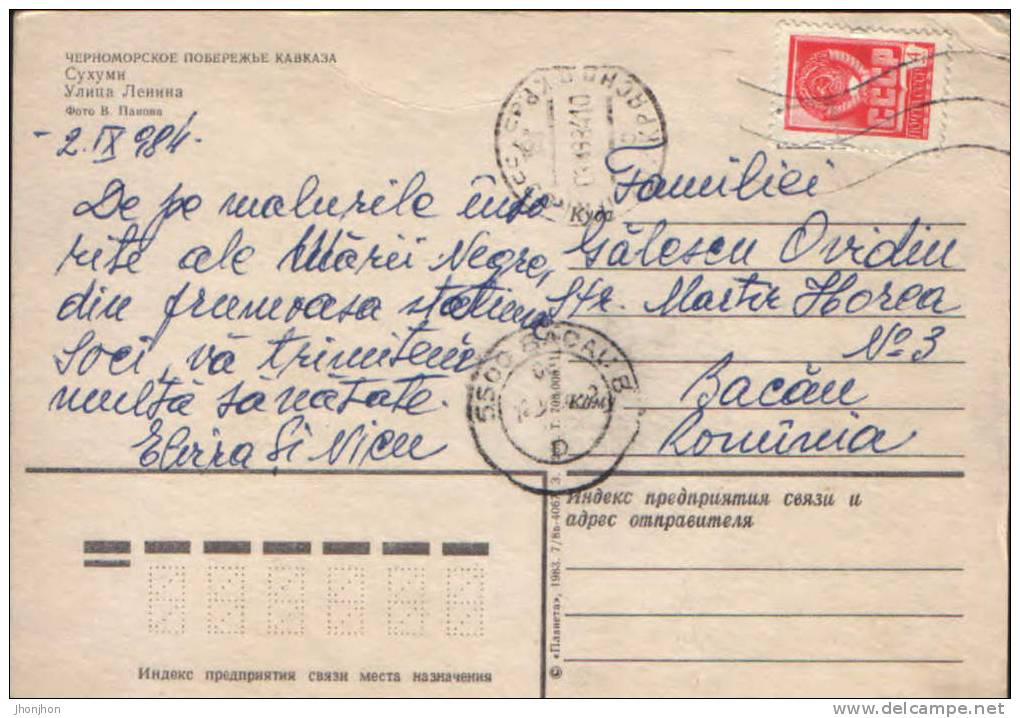 ЧЕРНОМОРСКОЕ ПОБЕРЕЖЬЕ КАВКАЗА
Сухуми
Улица Ленина
Фото В. Панова
- 2. IX 984 -
De pe malurile înso
rite ale Mării Negre,
din frumoasa stațiune
Soci, vă trimitem
multă sănătate.
Elvira și Nicu
СССР
ПОЧТА СССР 4
Куда
Familiei
Gălescu Ovidiu
Str. Martir Horea
No. 3
Кому
Bacău
România
5500 BACAU
Индекс предприятия связи и
адрес отправителя
Индекс предприятия связи места назначения
© «Планета», 1983. 7/Вв-4067. З.
jhonjhon
www.delcampe.net